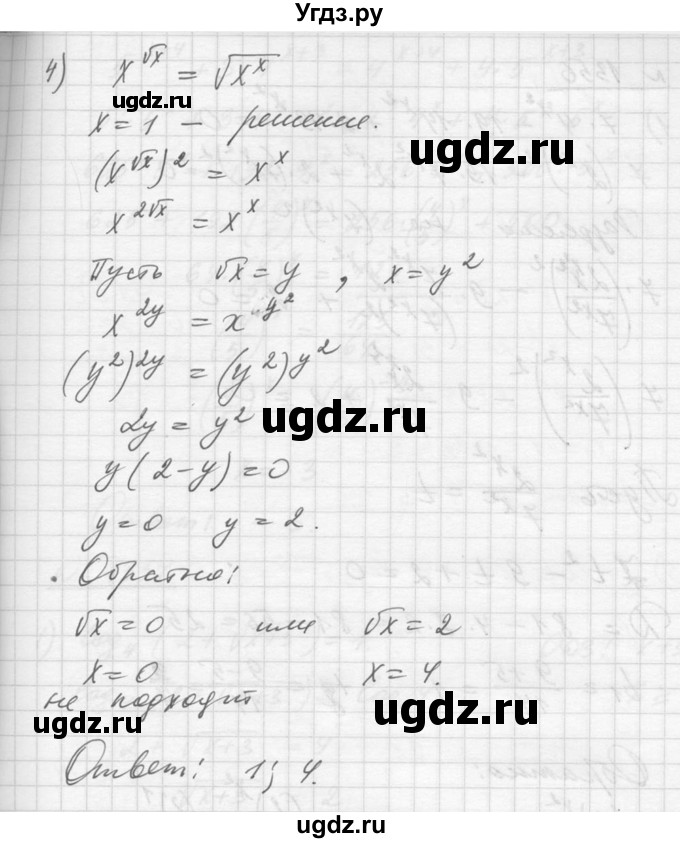 Угдз.ру
4) x^{√x} = √(x^x)
ugdz.ru
x = 1 – решение.
ugdz.ru
(x^{√x})^2 = x^x
x^{2√x} = x^x
Пусть √x = y , x = y^2
x^{2y} = x^{y^2}
(y^2)^{2y} = (y^2)^{y^2}
ugdz.ru
2y = y^2
y(2-y) = 0
y = 0 y = 2.
Обратно:
√x = 0 или √x = 2
x = 0 x = 4.
не подходит
ugdz.ru
ugdz.ru
Ответ: 1; 4.
ugdz.ru
ugdz.ru